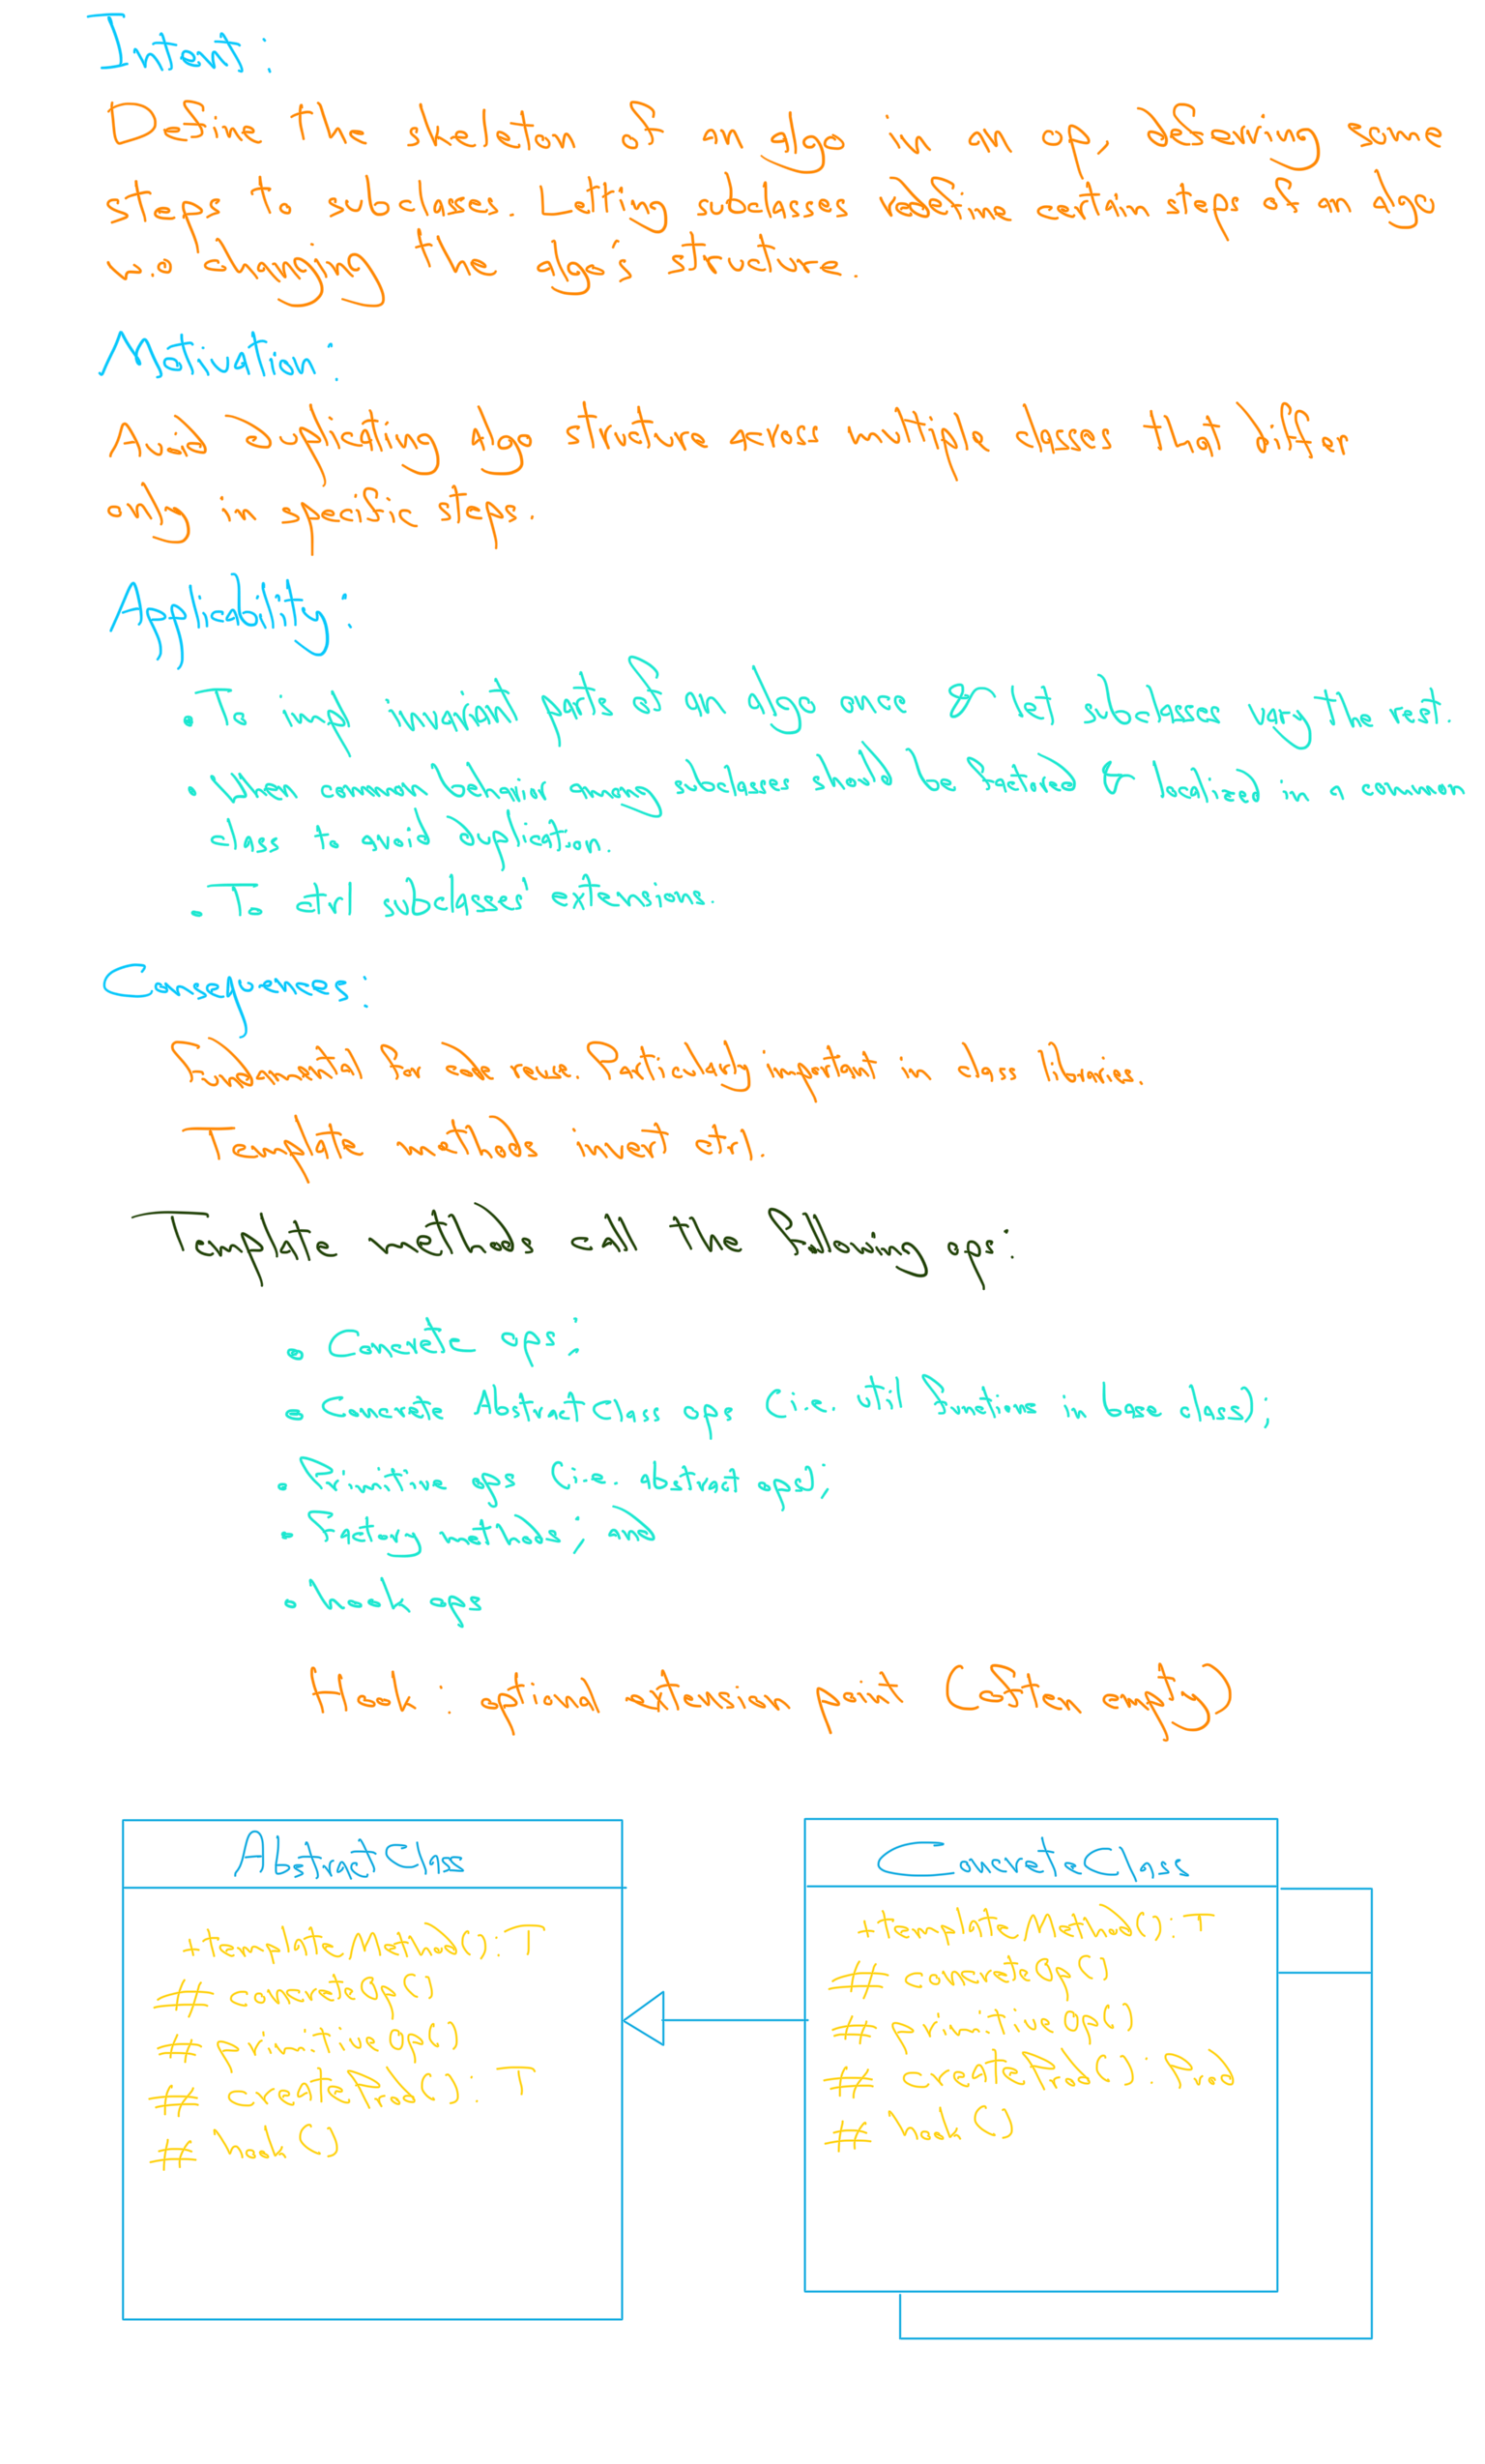 Intent:
Define the skeleton of an algo in an op, defering some
steps to subclasses. Letting subclasses redefine certain steps of an algo
w.o changing the algo's structure.
Motivation:
Avoid duplicating algo structure across multiple classes that differ
only in specific steps.
Applicability:
• To impl invariant parts of an algo once & let subclasses vary the rest.
• When common behavior among subclasses should be factored & localized in a common
class to avoid duplication.
• To ctrl subclasses' extensions.
Consequences:
Fundamental for code reuse. Particularly important in class libraries.
Template methods invert ctrl.
Template methods call the following ops:
• Concrete ops;
• Concrete AbstractClass ops (i.e. util functions in base class);
• Primitive ops (i.e. abstract ops);
• Factory methods; and
• hook ops
Hook: optional extension point (often empty)
AbstractClass
+templateMethod():T
# concreteOp()
# primitiveOp()
# createProd(): T
# hook()
ConcreteClass
+templateMethod():T
# concreteOp()
# primitiveOp()
# createProd(): Prod
# hook()